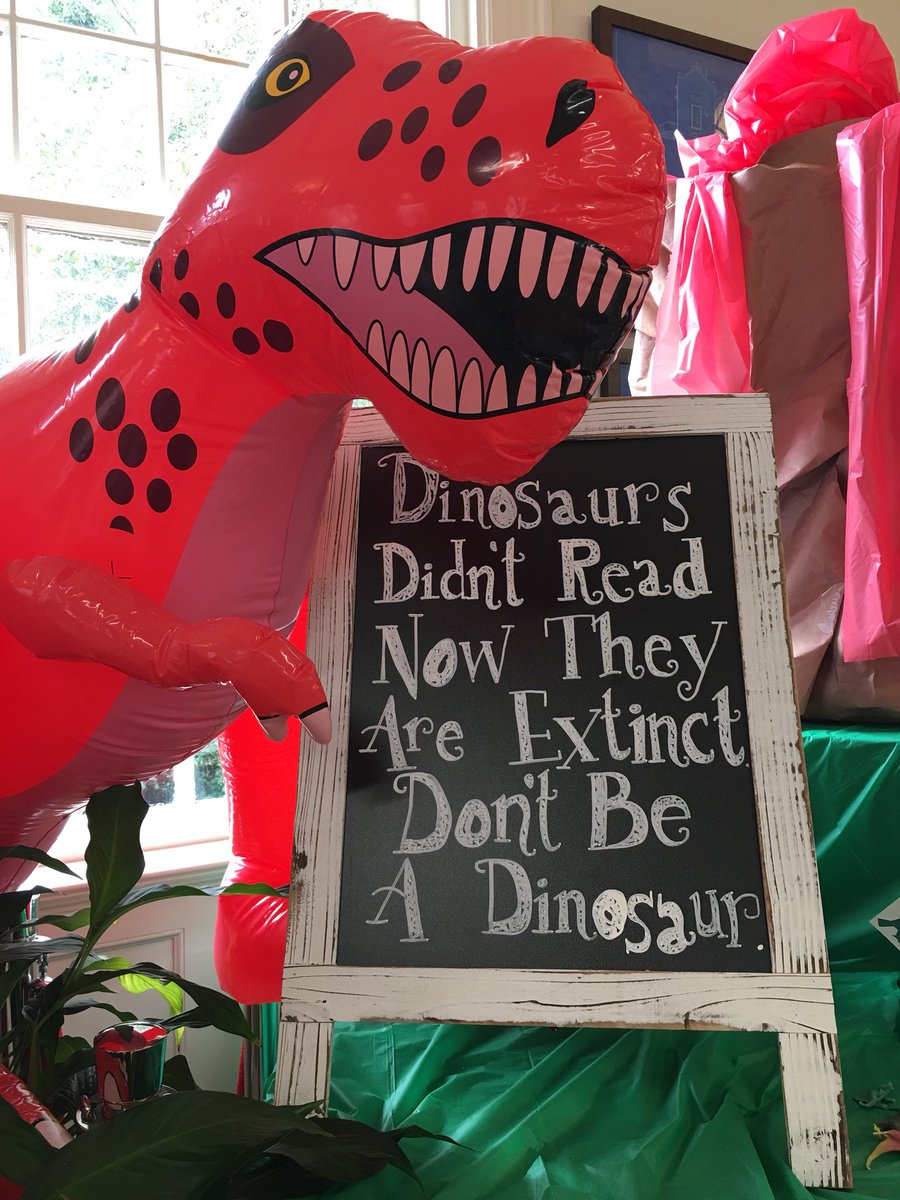 Dinosaurs
Didn't Read
Now They
Are Extinct.
Don't Be
A Dinosaur.